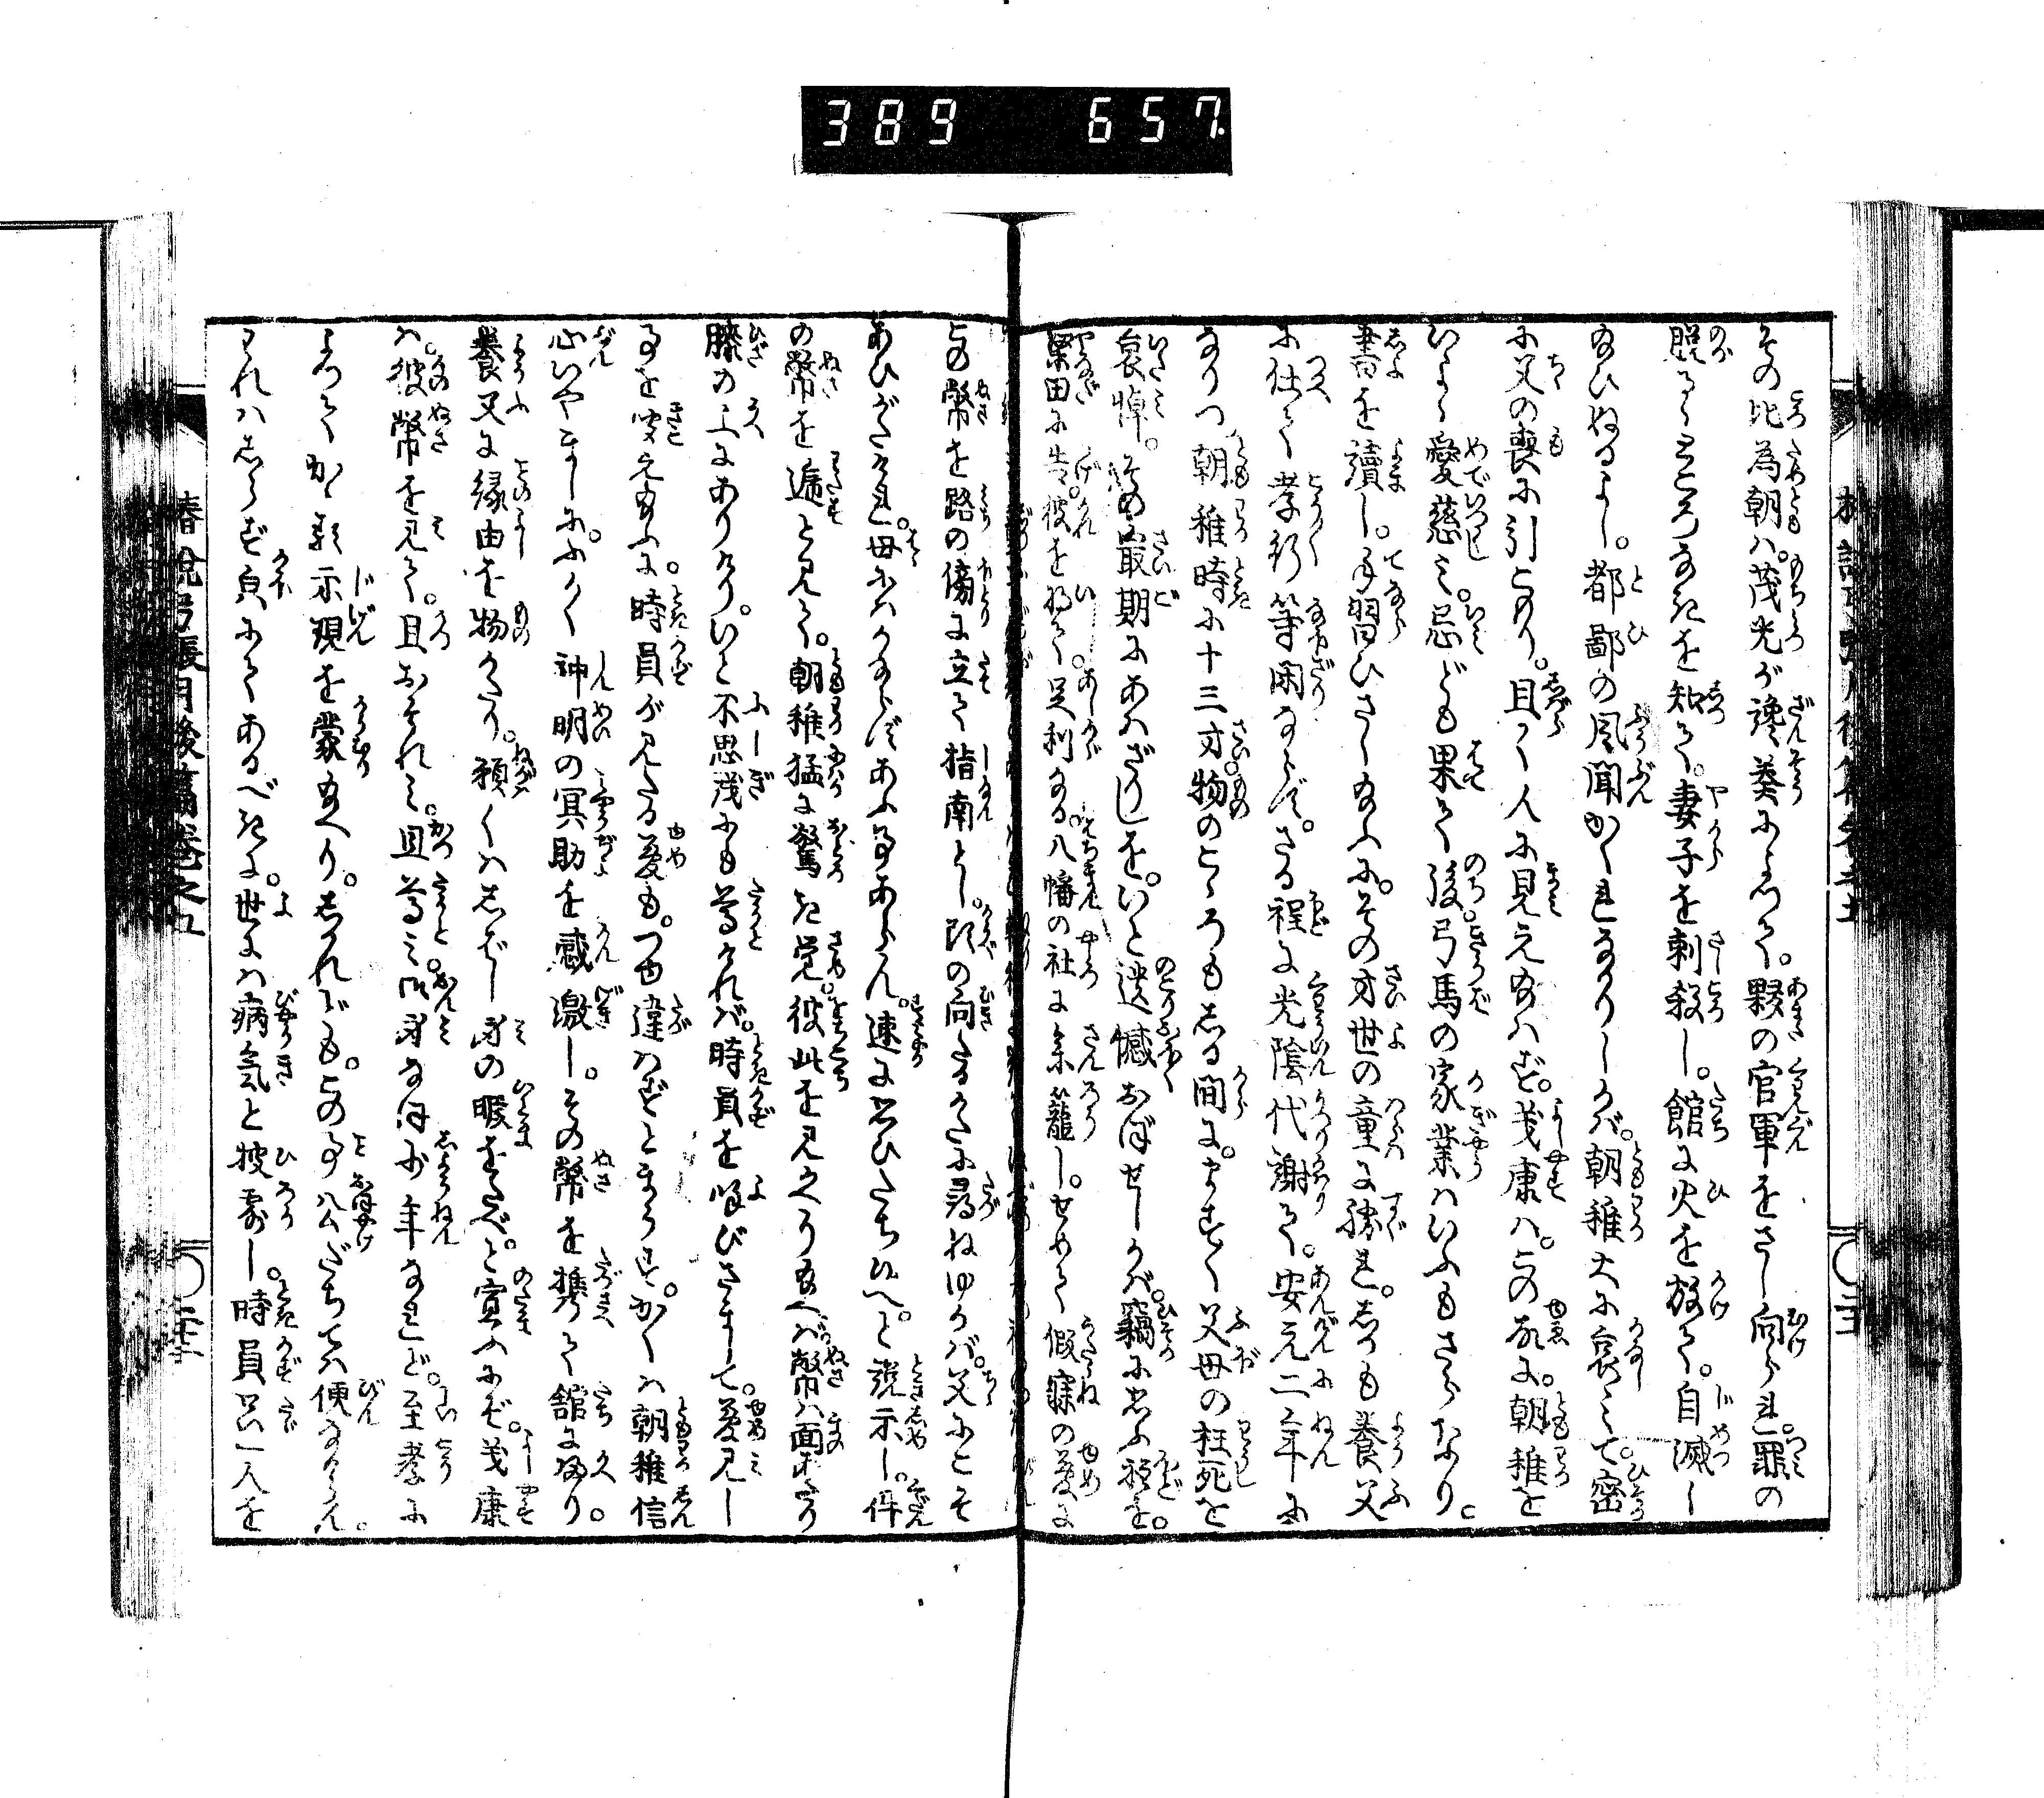 389 657
その比為朝ハ。茂光が讒奏によつて。夥の官軍をさし向られ。罪の
脱るゝところなきを知て。妻子を刺殺し。館に火を放て。自滅し
給ひぬるよし。都鄙の風聞かくれなかりしかバ。朝稚大に哀みて。密
に父の喪に引こもり。且く人に見え給はず。義康ハ。この故に。朝稚を
いよゝ愛慈み。忌ども果て後。弓馬の家業ハいふもさらなり。
書を讀し。手習ひさし給ふに。その才世の童に勝れ。しかも養父
に仕て孝行等閑ならず。さる程に光陰代謝て。安元二年に
なりつ。朝稚時に十三才物のこゝろもしる間に。ますます父母の枉死を
哀悼。その最期にあはざりしを。いと遺憾おぼせしかバ。竊に思ふ程を。
簗田に告。彼を将て。足利なる。八幡の社に参籠し。せめて假寐の夢に
この幣を路の傍に立て指南とし。頭の向たるかたに尋ねゆかバ。父にこそ
あひがたけれ。母にハかならずあふ事あらん。速に思ひたち候へ。と説示し。件
の幣を遞と見て。朝稚猛に驚き覚。彼此を見かへり給へバ幣ハ面まのあたり
膝の上にありけり。いと不思議にも尊けれバ。時員を呼びさまして。夢見し
事を聞え給ふに。時員が見たる夢も。つゆ違はずとまうす。かくハ朝稚信
心いやましに。ふかく神明の冥助を感激し。その幣を携て舘に帰り。
養父に縁由を物がたり。願くハしばし身の暇をたべ。と宣ふにぞ。義康
ハ。彼幣を見て。且おそれみ。且尊み。御身なほ少年なれど。至孝に
よつてかゝる示現を蒙給へり。しかれども。この事公だちてハ便なからん。
われハしらず㒵にてあるべきに。世にハ病気と披露し。時員只一人を
椿説弓張月後篇巻之五